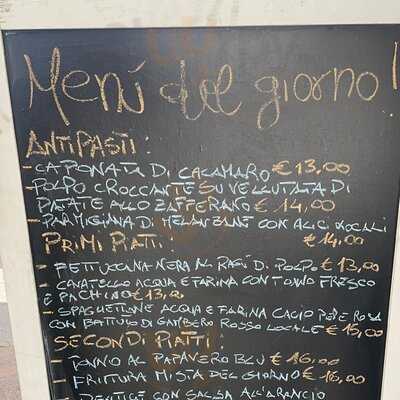 Menù del giorno!
ANTIPASTI:
- CAPONATA DI CALAMARO € 13,00
- POLPO CROCCANTE SU VELLUTATA DI
PATATE ALLO ZAFFERANO € 14,00
- PARMIGIANA DI MELANZANE CON ALICI LOCALI
€ 14,00
PRIMI PIATTI:
- FETTUCCINA NERA AL RAGÙ DI POLPO € 13,00
- ACQUA E FARINA CON TONNO FRESCO
E PACHINO € 13,00
- SPAGHETTONE ACQUA E FARINA CACIO PEPE ROSA
CON BATTUTO DI GAMBERO ROSSO LOCALE € 15,00
SECONDI PIATTI:
- TONNO AL PAPAVERO BLU € 16,00
- FRITTURA MISTA DEL GIORNO € 16,00
- DENTICE CON SALSA ALL'ARANCIO